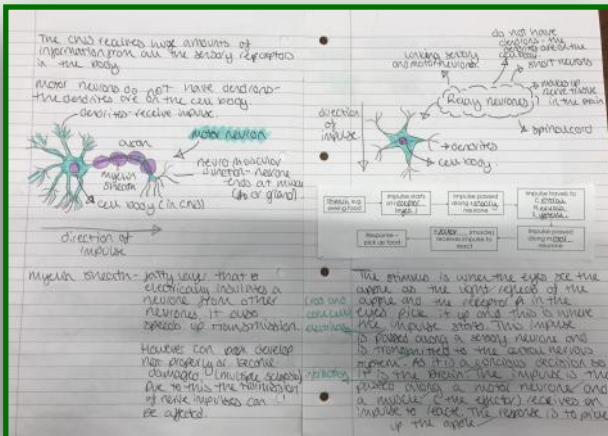 The CNS receives huge amounts of
information from all the sensory receptors
in the body
Motor neurons do not have dendrons -
the dendrites are on the cell body.
dendrites - receive impulse
motor neuron
axon
myelin
sheath
neuro muscular
junction - neurone
ends at muscle
(or gland)
cell body (in CNS)
direction of
impulse
myelin sheath - fatty layer that is
electrically insulates a
neurone from other
neurones, it also
speeds up transmission
However can
not properly or become
damaged (multiple sclerosis)
Due to this the
of nerve impulses can
be affected.
do not have
dendrons - the
dendrites are on the
cell body
linking sensory
and motor neurones
short neurons
makes up
nerve tissue
in the brain
Relay neurones
spinal cord
direction
of
impulse
dendrites
cell body
Stimulus, e.g.
seeing food
Impulse starts
in receptor
(eyes)
Impulse passed
along sensory
neurone
Impulse travels to
central
nervous
system
Impulse passed
along motor
neurone
(muscle)
receives impulse to
react
Response -
pick up food
The stimulus is when the eyes see the
apple as the light reflects off the
apple and the receptor in the
eyes pick it up and this is where
the impulse starts. This impulse
is passed along a sensory neurone and
is transmitted to the central nervous
system. As it is a concious decision so
it is the brain. The impulse is then
passed along a motor neurone and
a muscle (the effector) receives an
impulse to react. The response is to pick
up the apple.